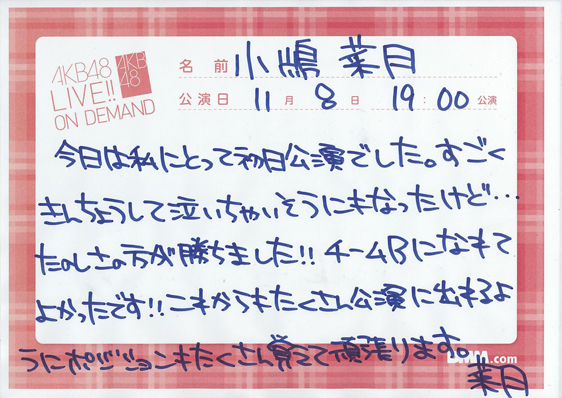 AKB48
LIVE!!
ON DEMAND
AKB
48
名前 小嶋 菜月
公演日 11月 8日 19:00 公演
今日は私にとって初日公演でした。すごく
きんちょうして泣いちゃいそうにもなったけど…
たのしさの方が勝ちました!!チームBになれて
よかったです!!これからもたくさん公演に出れるよ
うにポジションもたくさん覚えて頑張ります。
DMM.com
菜月